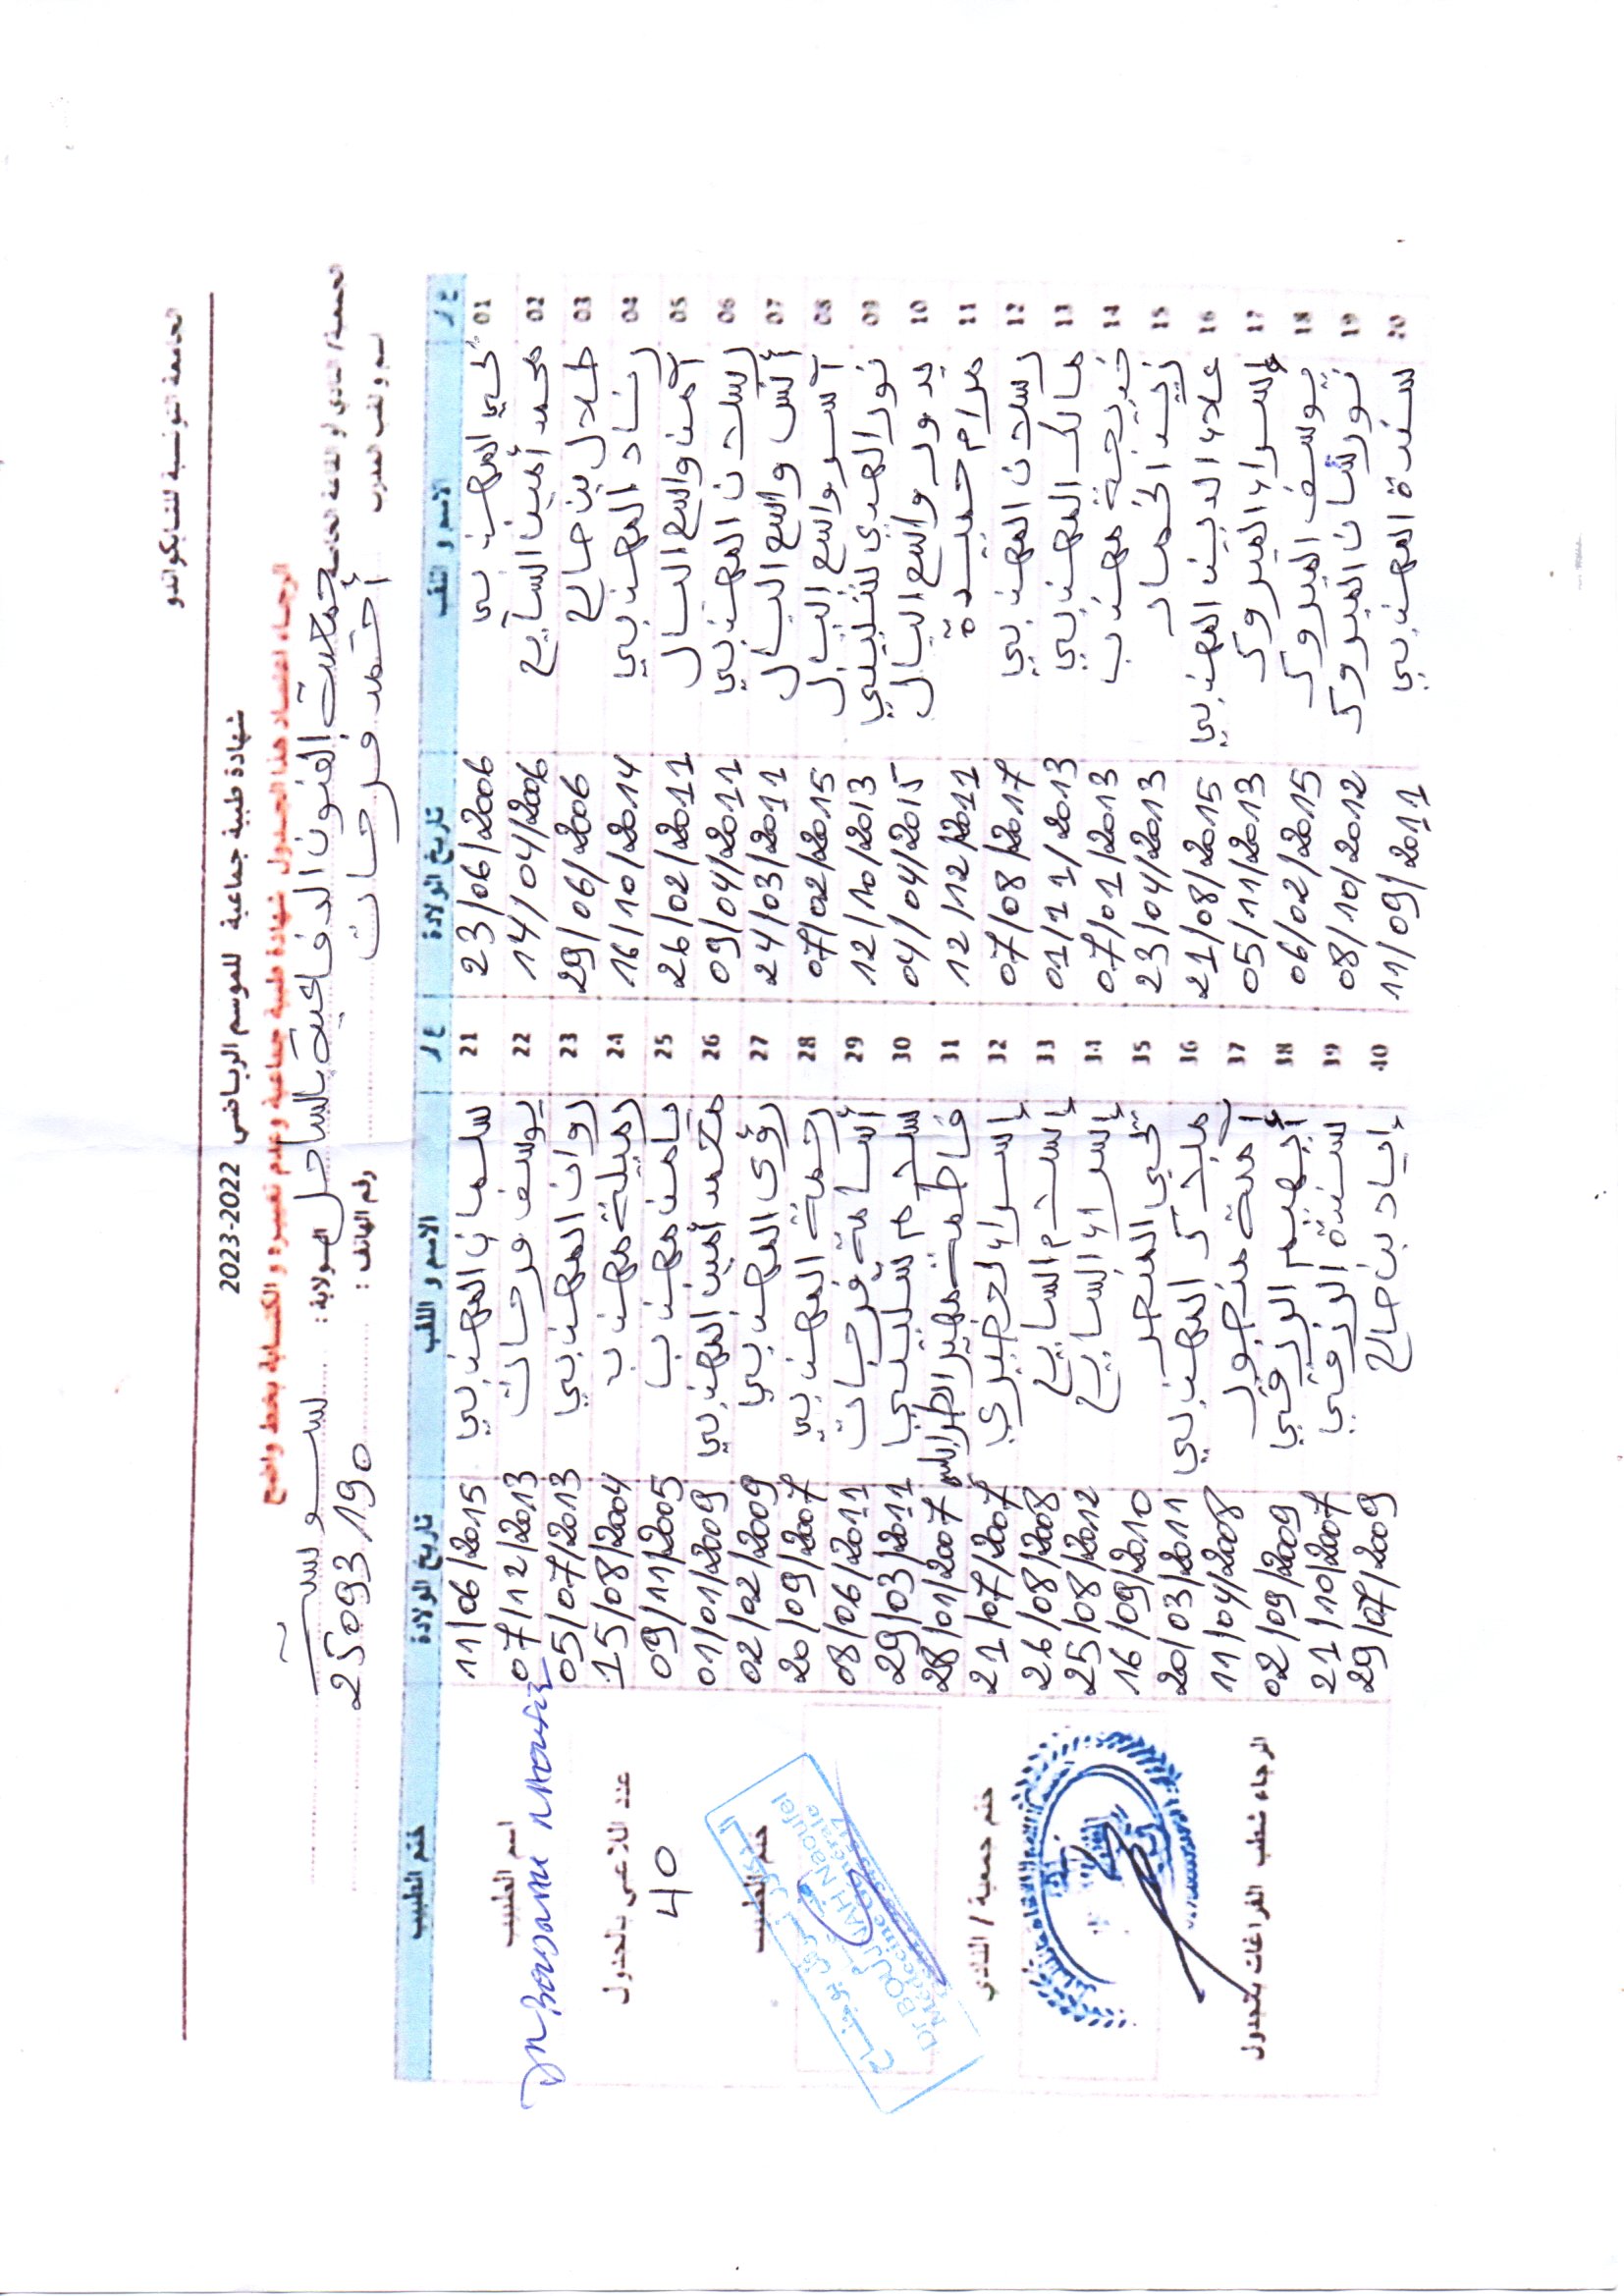 الجامعة التونسية للتايكواندو
شهادة طبية جماعية للموسم الرياضي 2022-2023
الرجاء اعتماد هذا الجدول شهادة طبية جماعية وعدم تغييره و الكتابة بخط واضح
الجمعية/ النادي او القاعة الخاصة جمعية الفنون الدفاعية بالساحل الولاية: سوسة
اسم و لقب المدرب أحمد فرحات رقم الهاتف: 25093190
ع/ر الاسم و اللقب تاريخ الولادة ع/ر الاسم و اللقب تاريخ الولادة ختم الطبيب
01 يحي المهذبي 23/06/2006 21 سلمان المهذبي 11/06/2015
02 محمد أمين السايح 14/04/2006 22 يوسف فرحات 07/12/2013
03 طلال بن صالح 29/06/2006 23 روان المهذبي 05/07/2013
04 المهذبي 16/10/2014 24 مهذب 15/08/2004
05 واسع البال 26/02/2011 25 يامن مهذب 09/11/2005
06 رسلان المهذبي 09/04/2011 26 محمد أمين المهذبي 01/01/2009
07 أنس واسع البال 24/03/2011 27 رؤى المهذبي 02/02/2009
08 آسر واسع البال 07/02/2015 28 رحمة المهذبي 20/09/2007
09 نور الهدى الشليبي 12/10/2013 29 أسامة فرحات 08/06/2011
10 بدور واسع البال 04/04/2015 30 شليبي 29/03/2011
11 مرام حميدة 12/12/2011 31 فاطمة مهير الطرابلسي 28/01/2007
12 رسلان المهذبي 07/08/2017 32 إسراء لخضيري 21/07/2007
13 مالك المهذبي 01/11/2013 33 السايح 26/08/2008
14 خديجة مهذب 07/01/2013 34 إسراء السايح 25/08/2012
15 زينب الخمار 23/04/2013 35 يحي 16/09/2010
16 علاء الدين المهذبي 21/08/2015 36 المهذبي 20/03/2011
17 إسراء المبروك 05/11/2013 37 آمنة منجور 11/04/2008
18 يوسف المبروك 06/02/2015 38 أيهم الرزقي 02/09/2009
19 نورسان المبروك 08/10/2012 39 الرزقي 21/10/2007
20 سندة المهذبي 11/09/2011 40 إياد بن صالح 29/07/2009
اسم الطبيب
عدد اللاعبين بالجدول
40
ختم الطبيب
Dr BOUJNAH Naoufel
Médecine Générale
ختم جمعية / النادي
الرجاء شطب الفراغات بالجدول